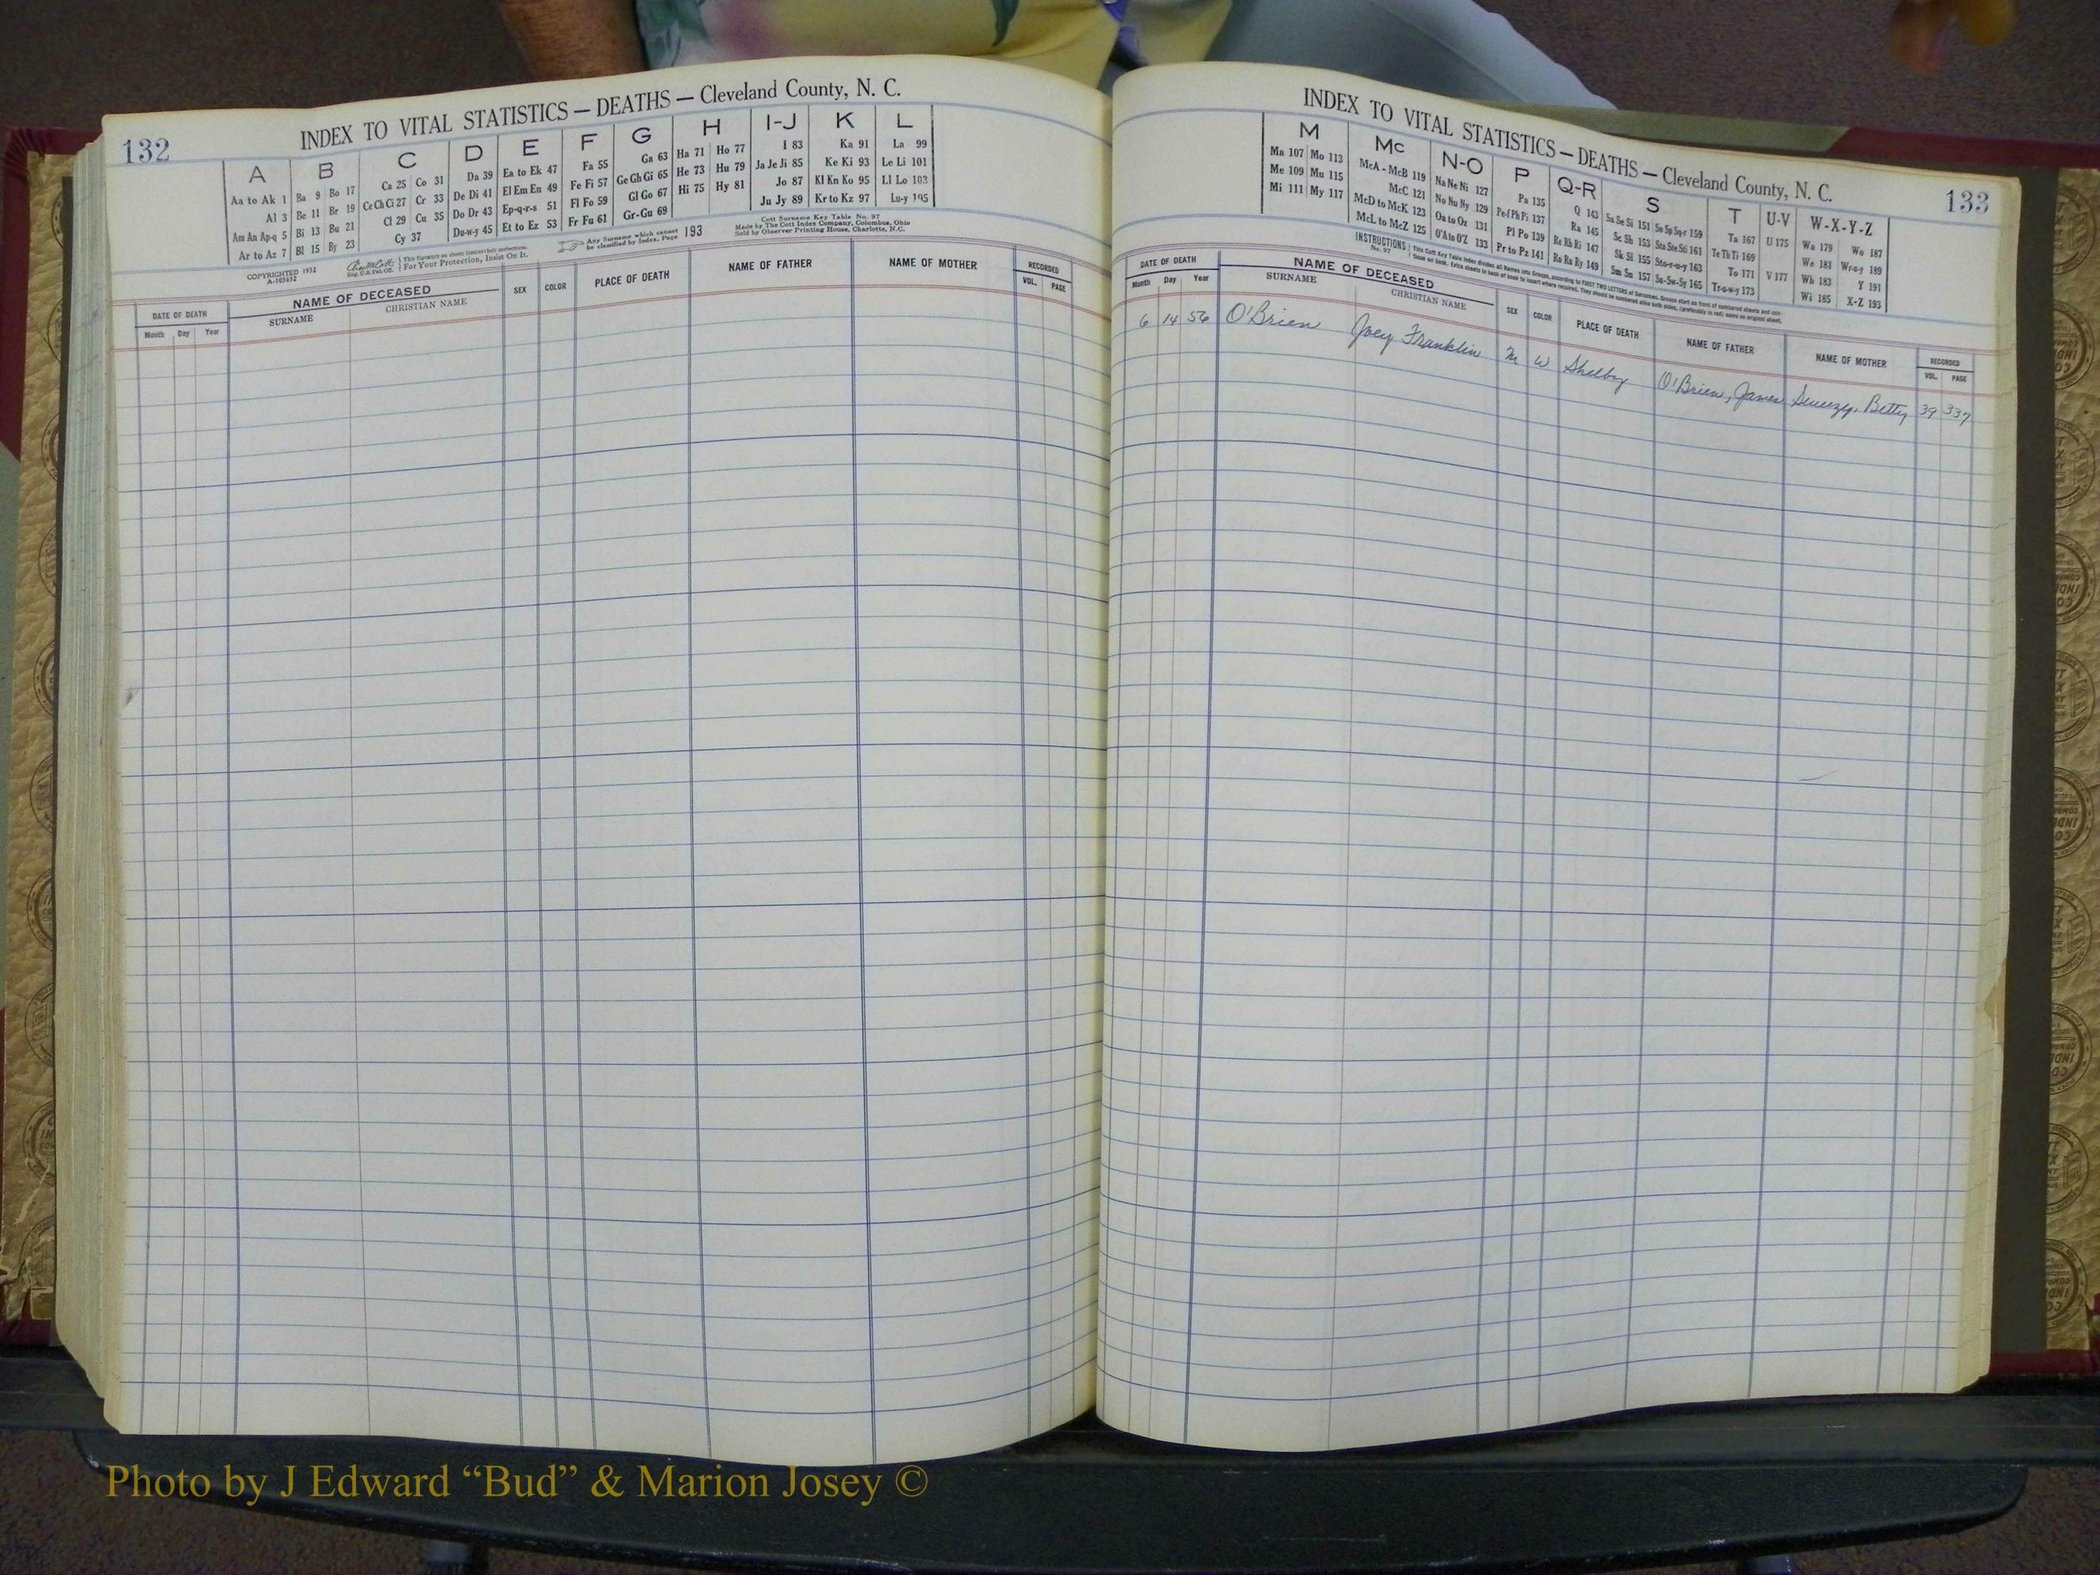 132
INDEX TO VITAL STATISTICS — DEATHS — Cleveland County, N. C.
A B C D E F G H I-J K L
Aa to Ak 1 Ba 9 Bo 17 Ca 25 Co 31 Da 39 Ea to Ek 47 Fa 55 Ga 63 Ha 71 Ho 77 I 83 Ka 91 La 99
Al 3 Be 11 Br 19 Ce Ch Ci 27 Cr 33 De Di 41 El Em En 49 Fe Fi 57 Ge Gh Gi 65 He 73 Hu 79 Ja Je Ji 85 Ke Ki 93 Le Li 101
Am An Ap-q 5 Bi 13 Bu 21 Cl 29 Cu 35 Do Dr 43 Ep-q-r-s 51 Fl Fo 59 Gl Go 67 Hi 75 Hy 81 Jo 87 Kl Kn Ko 95 Ll Lo 103
Ar to Az 7 Bl 15 By 23 Cy 37 Du-w-y 45 Et to Ez 53 Fr Fu 61 Gr-Gu 69 Ju Jy 89 Kr to Kz 97 Lu-y 105
COPYRIGHTED 1932
A-103652
Reg. U.S. Pat. Off.
This Signature on sheets insures best correctness.
For Your Protection, Insist On It.
Any Surname which cannot
be classified by Index. Page 193
Cott Surname Key Table No. 97
Made by The Cott Index Company, Columbus, Ohio
Sold by Observer Printing House, Charlotte, N.C.
DATE OF DEATH NAME OF DECEASED SEX COLOR PLACE OF DEATH NAME OF FATHER NAME OF MOTHER RECORDED
Month Day Year SURNAME CHRISTIAN NAME VOL. PAGE
INDEX TO VITAL STATISTICS — DEATHS — Cleveland County, N. C.
133
M Mc N-O P Q-R S T U-V W-X-Y-Z
Ma 107 Mo 113 McA - McB 119 Na Ne Ni 127 Pa 135 Q 143 Sa Se Si 151 So Sp Sq-r 159 Ta 167 U 175 Wa 179 Wo 187
Me 109 Mu 115 McC 121 No Nu Ny 129 Pe-f Ph Pi 137 Ra 145 Sc Sh 153 Sta Ste Sti 161 Te Th Ti 169 We 181 Wr-u-y 189
Mi 111 My 117 McD to McK 123 Oa to Oz 131 Pl Po 139 Re Rh Ri 147 Sk Sl 155 Sto-r-u-y 163 To 171 V 177 Wh 183 Y 191
McL to McZ 125 O'A to O'Z 133 Pr to Pz 141 Ro Ru Ry 149 Sm Sn 157 Su-Sw-Sy 165 Tr-u-w-y 173 Wi 185 X-Z 193
INSTRUCTIONS
No. 97
This Cott Key Table Index divides all Names into Groups, according to FIRST TWO LETTERS of Surnames. Groups start on front of numbered sheets and con-
tinue on back. Extra sheets in back of book to insert where required. They should be numbered alike both sides, (preferably in red) same as original sheet.
DATE OF DEATH NAME OF DECEASED SEX COLOR PLACE OF DEATH NAME OF FATHER NAME OF MOTHER RECORDED
Month Day Year SURNAME CHRISTIAN NAME VOL. PAGE
6 14 56 O'Brien Joey Franklin M W Shelby O'Brien, James Betty 39 337
Photo by J Edward “Bud” & Marion Josey ©